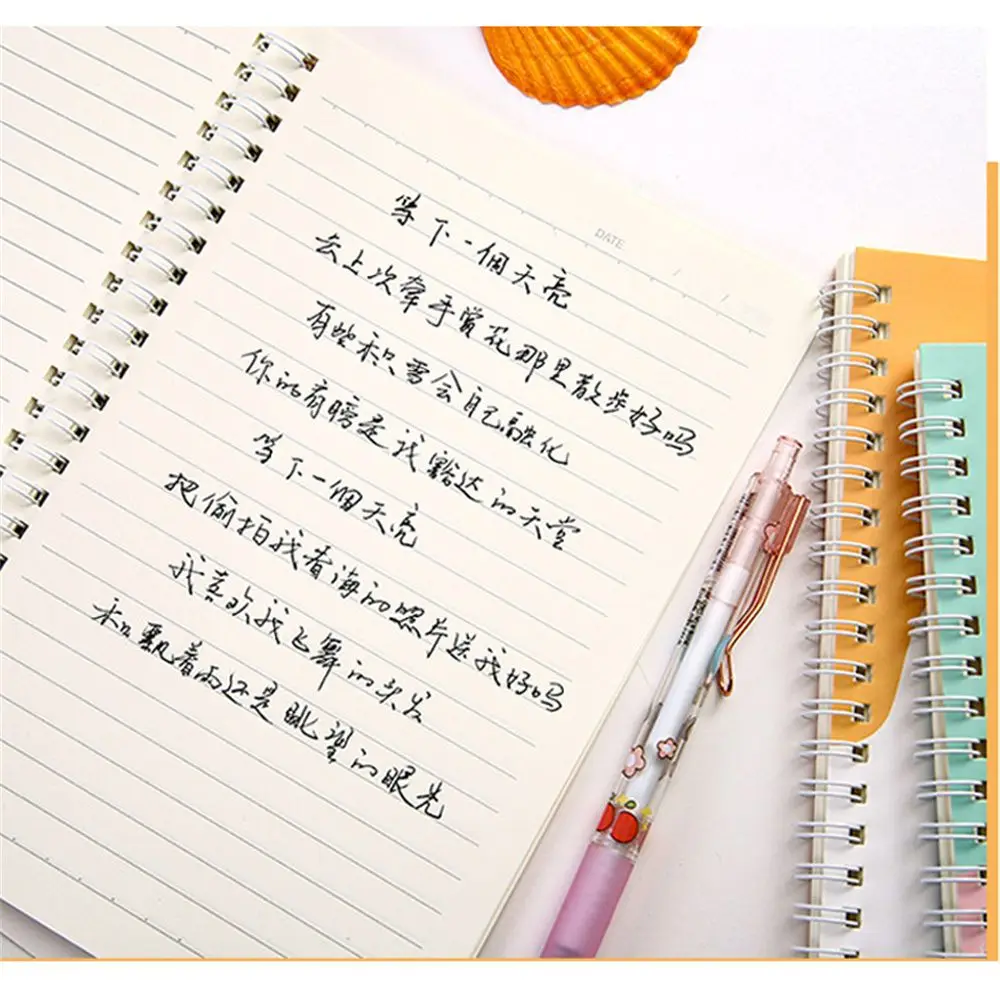 DATE
等下一個天亮
去上次牵手赏花那里散步好吗
有些积雪会自己融化
你的肩膀是我豁达的天堂
等下一個天亮
把偷拍我看海的照片送我好吗
我喜欢我飞舞的头发
和飘着雨还是眺望的眼光